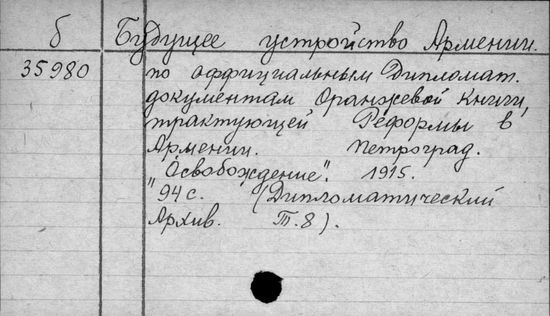 б Будущее устройство Армении.
35980 по оффициальным Дипломат.
документам Оранжевой Книги,
трактующей Реформы в
Армении. Петроград.
"Освобождение". 1915.
94 с. (Дипломатический
Архив. Т.8).